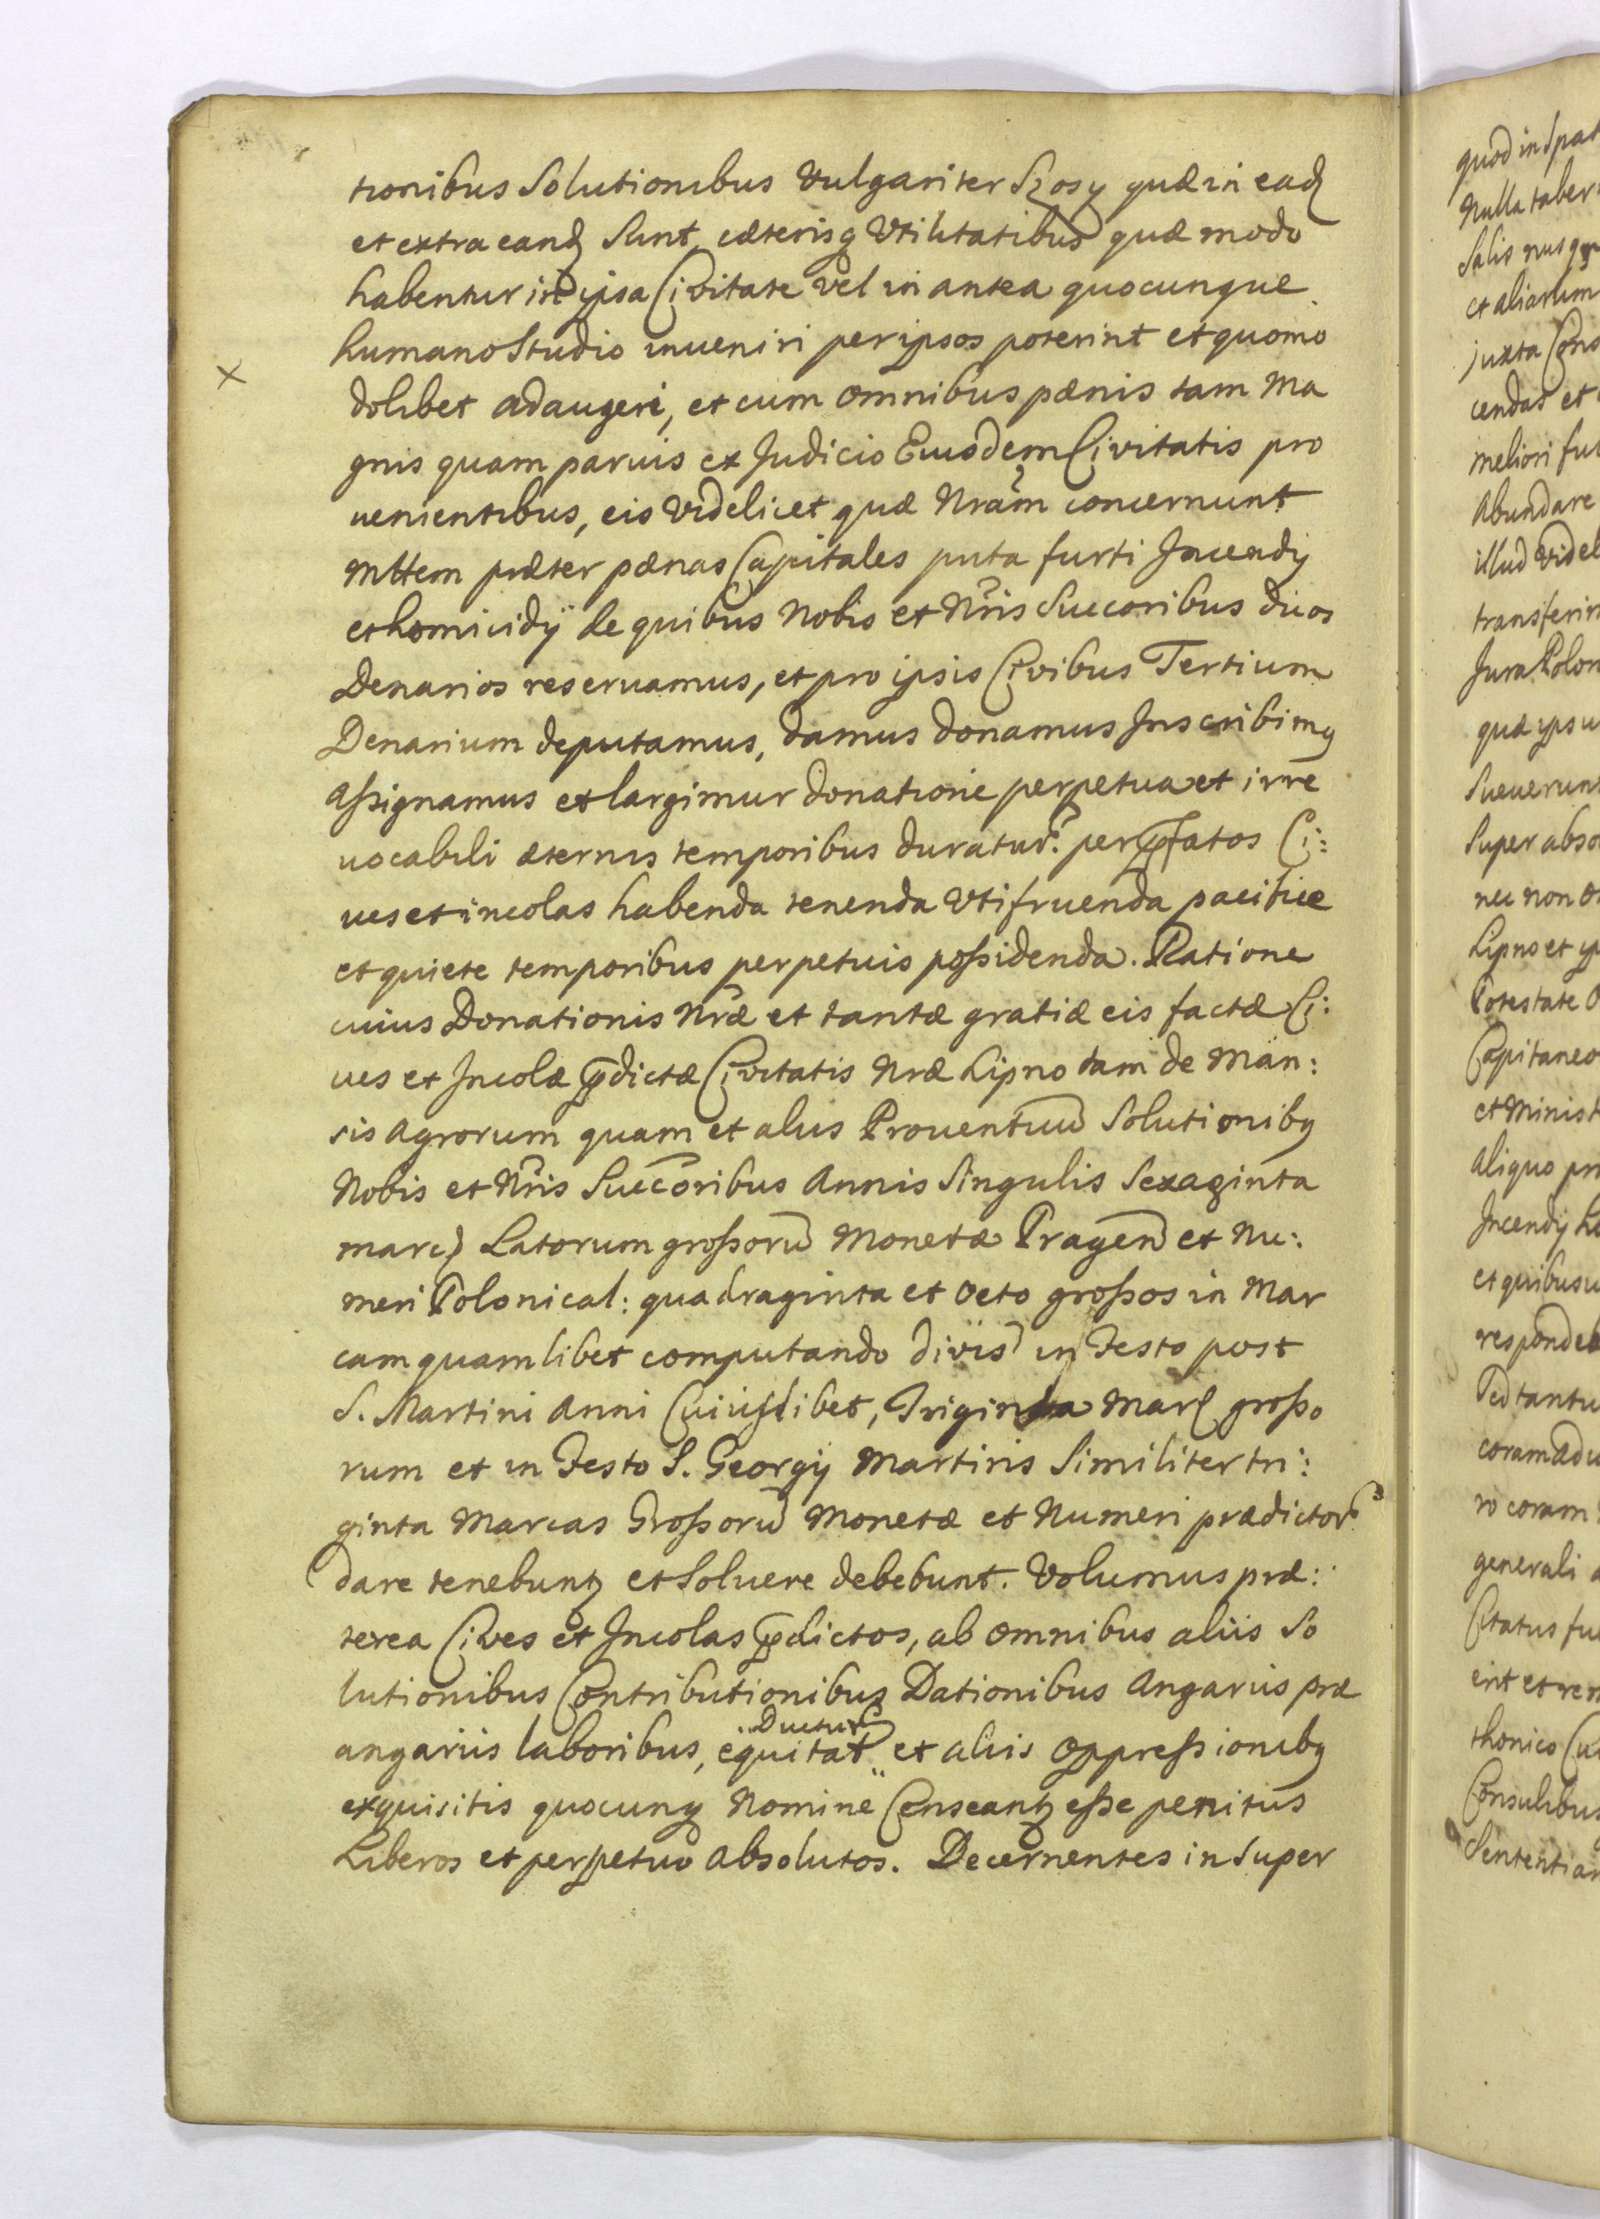 tionibus Solutionibus Vulgariter Szosy quæ in ead
et extra eand Sunt, cæterisq Vtilitatibus quæ modo
habentur in ipsa Civitate vel in antea quocunque
humano Studio inueniri per ipsos poterint et quomo
dolibet adaugeri, et cum omnibus pænis tam Ma
gnis quam paruis ex Judicio Eiusdem Civitatis pro
uenientibus, eis Videlicet quæ Nram concernunt
Mttem præter pænas Capitales puta furti Jncendij
et homicidij de quibus Nobis et Nris Succoribus duos
Denarios reseruamus, et pro ipsis Civibus Tertium
Denarium deputamus, damus donamus Jnscribimq
Aſsignamus et largimur donatione perpetua et irre
uocabili æternis temporibus duratur. per pfatos Ci:
ues et incolas habenda tenenda Vtifruenda pacifice
et quiete temporibus perpetuis poſsidenda. Ratione
cuius Donationis Nræ et tantæ gratiæ eis factæ Ci:
ues et Jncolæ pdictæ Civitatis Nræ Lipno tam de Man:
sis Agrorum quam et aliis Prouentuu Solutionibq
Nobis et Nris Succoribus Annis Singulis Sexaginta
marc Latorum groſsoru Monetæ Pragen et Nu:
meri Polonical: quadraginta et octo groſsos in Mar
cam quamlibet computando divis in Festo post
S. Martini Anni Cuiuslibet, Triginta Marc groſso
rum et in Festo S. Georgij Martiris Similiter tri:
ginta Marcas Groſsoru Monetæ et Numeri prædictor
dare tenebuntz et Soluere debebunt. Volumus præ:
terea Cives et Jncolas pdictos, ab omnibus aliis So
lutionibus Contributionibus Dationibus Angariis præ
Ductur
angariis laboribus, equitat et aliis oppreſsionibq
exquisitis quocunq Nomine Censeantz eſse penitus
Liberos et perpetuo absolutos. Decernentes in Super
quod in Spat
Nulla taber
Salis nusq
et aliarum
juxta Cons
cendas et
meliori fu
Abundare
illud Videl
transferri
Jura Polon
quæ ipsu
Sueuerunt
Super abso
nec non
Lipno et ip
Potestate
Capitaneo
et Minist
Aliquo pr
Jncendij
et quibusu
respondeb
Sed tantu
coram Adu
ro coram
generali
Citatus fu
erit et
thonico
Consulibus
Sententiar